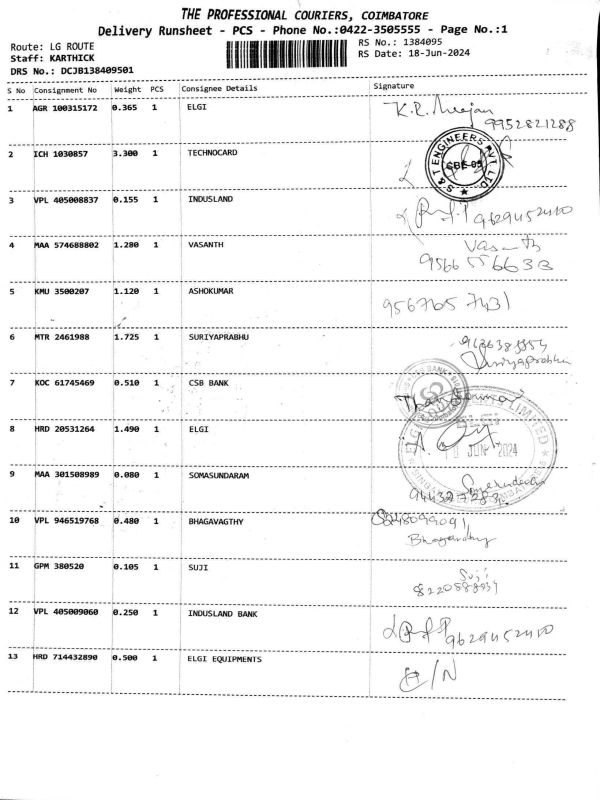 THE PROFESSIONAL COURIERS, COIMBATORE
Delivery Runsheet - PCS - Phone No.:0422-3505555 - Page No.:1
Route: LG ROUTE
Staff: KARTHICK
DRS No.: DCJB138409501
RS No.: 1384095
RS Date: 18-Jun-2024
S No Consignment No Weight PCS Consignee Details Signature
1 AGR 100315172 0.365 1 ELGI K.R.
9952821288
2 ICH 1030857 3.300 1 TECHNOCARD
S&T ENGINEERS PVT. LTD.
3 VPL 405008837 0.155 1 INDUSLAND 9629452400
4 MAA 574688802 1.280 1 VASANTH Vasanth
9566556633
5 KMU 3500207 1.120 1 ASHOKUMAR 9567657431
6 MTR 2461988 1.725 1 SURIYAPRABHU
Suriyaprabhu
7 KOC 61745469 0.510 1 CSB BANK
8 HRD 20531264 1.490 1 ELGI
JUN 2024
9 MAA 301508989 0.080 1 SOMASUNDARAM
10 VPL 946519768 0.480 1 BHAGAVAGTHY
11 GPM 380520 0.105 1 SUJI Suji
12 VPL 405009060 0.250 1 INDUSLAND BANK 9629452400
13 HRD 714432890 0.500 1 ELGI EQUIPMENTS